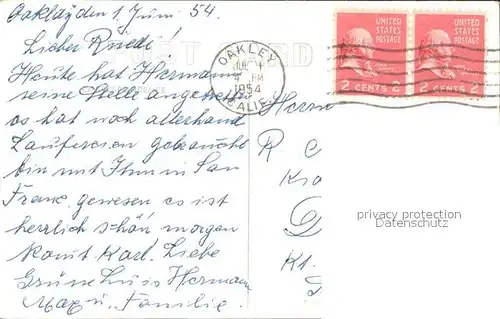 Oakley den 1. Juni 54.
Lieber Ruedi!
Heute hat Hermann
seine Stelle angetreten
es hat noch allerhand
Laufereien gebraucht
bin mit Ihm in San
Franc. gewesen es ist
herrlich schön morgen
komt Karl. Liebe
Grüne Luis Hermann
Max u. Familie.
POST CARD
OAKLEY
1954
CALIF.
UNITED STATES POSTAGE
2 CENTS 2
UNITED STATES POSTAGE
2 CENTS 2
Herrn
R.
Kt.
privacy protection
www.ansichtskartenversand.com